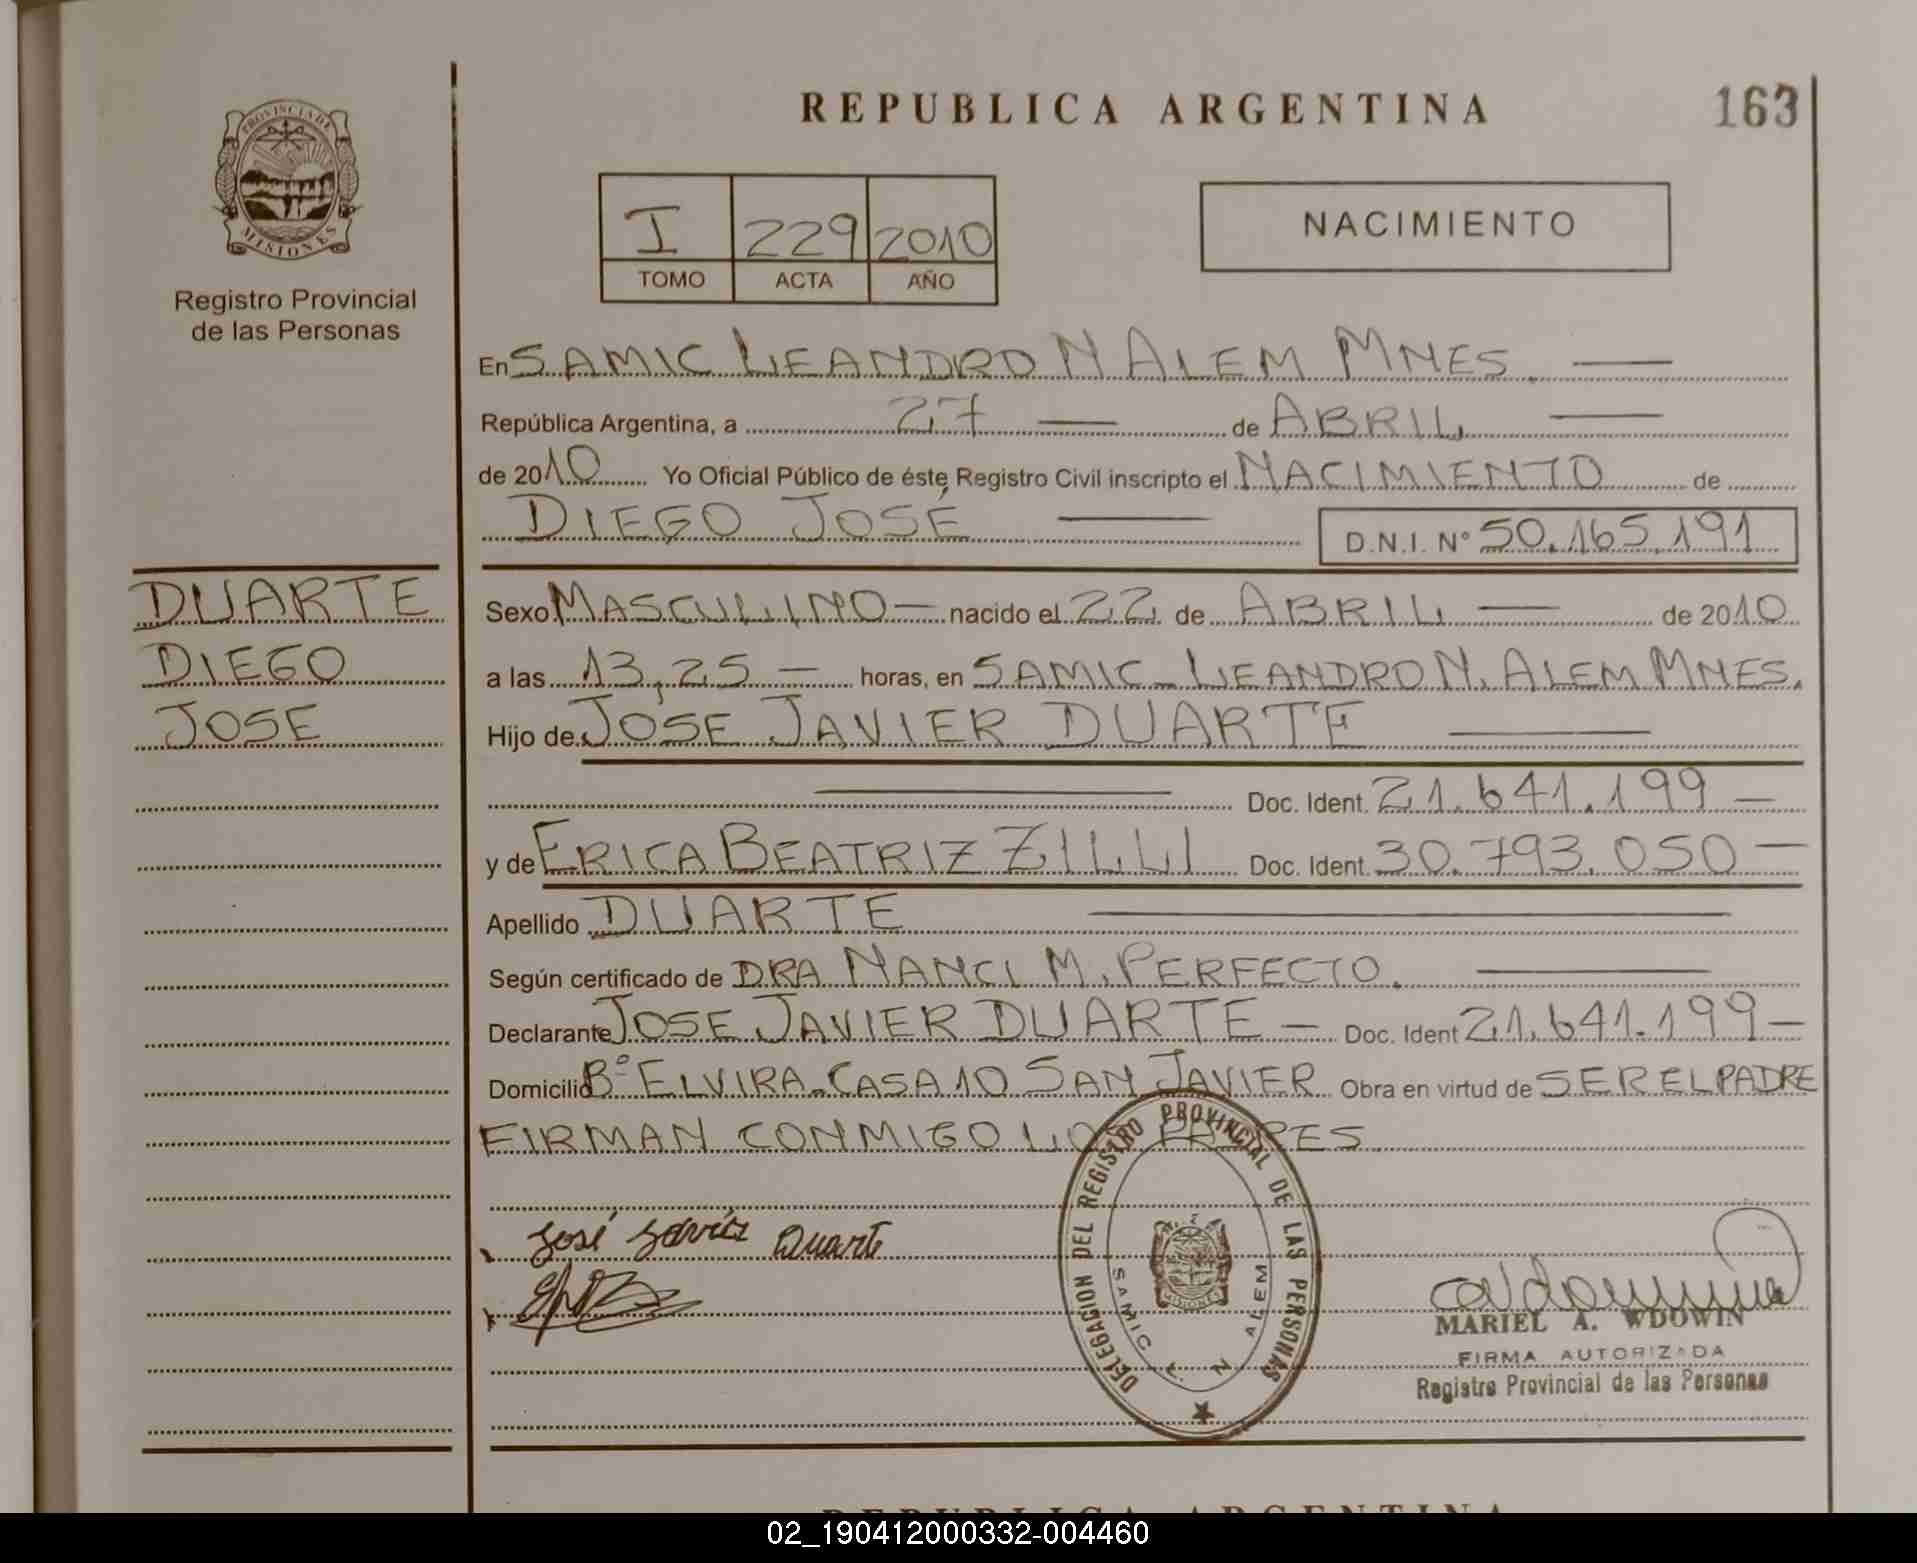 REPUBLICA ARGENTINA
163
PROVINCIA DE
MISIONES
Registro Provincial
de las Personas
I 229 2010
TOMO ACTA AÑO
NACIMIENTO
En SAMIC LEANDRO N ALEM MNES. —
República Argentina, a 27 — de ABRIL —
de 2010 Yo Oficial Público de éste Registro Civil inscripto el NACIMIENTO de
DIEGO JOSÉ — D.N.I. N° 50.165.191
DUARTE
DIEGO
JOSE
Sexo MASCULINO — nacido el 22 de ABRIL — de 2010
a las 13,25 — horas, en SAMIC - LEANDRO N. ALEM MNES.
Hijo de JOSE JAVIER DUARTE —
— Doc. Ident. 21.641.199 —
y de ERICA BEATRIZ ZILLI Doc. Ident. 30.793.050 —
Apellido DUARTE —
Según certificado de DRA NANCI M. PERFECTO. —
Declarante JOSE JAVIER DUARTE — Doc. Ident 21.641.199 —
Domicilio B° ELVIRA - CASA 10 SAN JAVIER Obra en virtud de SER EL PADRE
FIRMAN CONMIGO LOS PADRES
José Javier Duarte
DELEGACION DEL REGISTRO PROVINCIAL DE LAS PERSONAS
SAMIC L. N ALEM
MISIONES
MARIEL A. WDOWIN
FIRMA AUTORIZADA
Registro Provincial de las Personas
REPUBLICA ARGENTINA
02_190412000332-004460